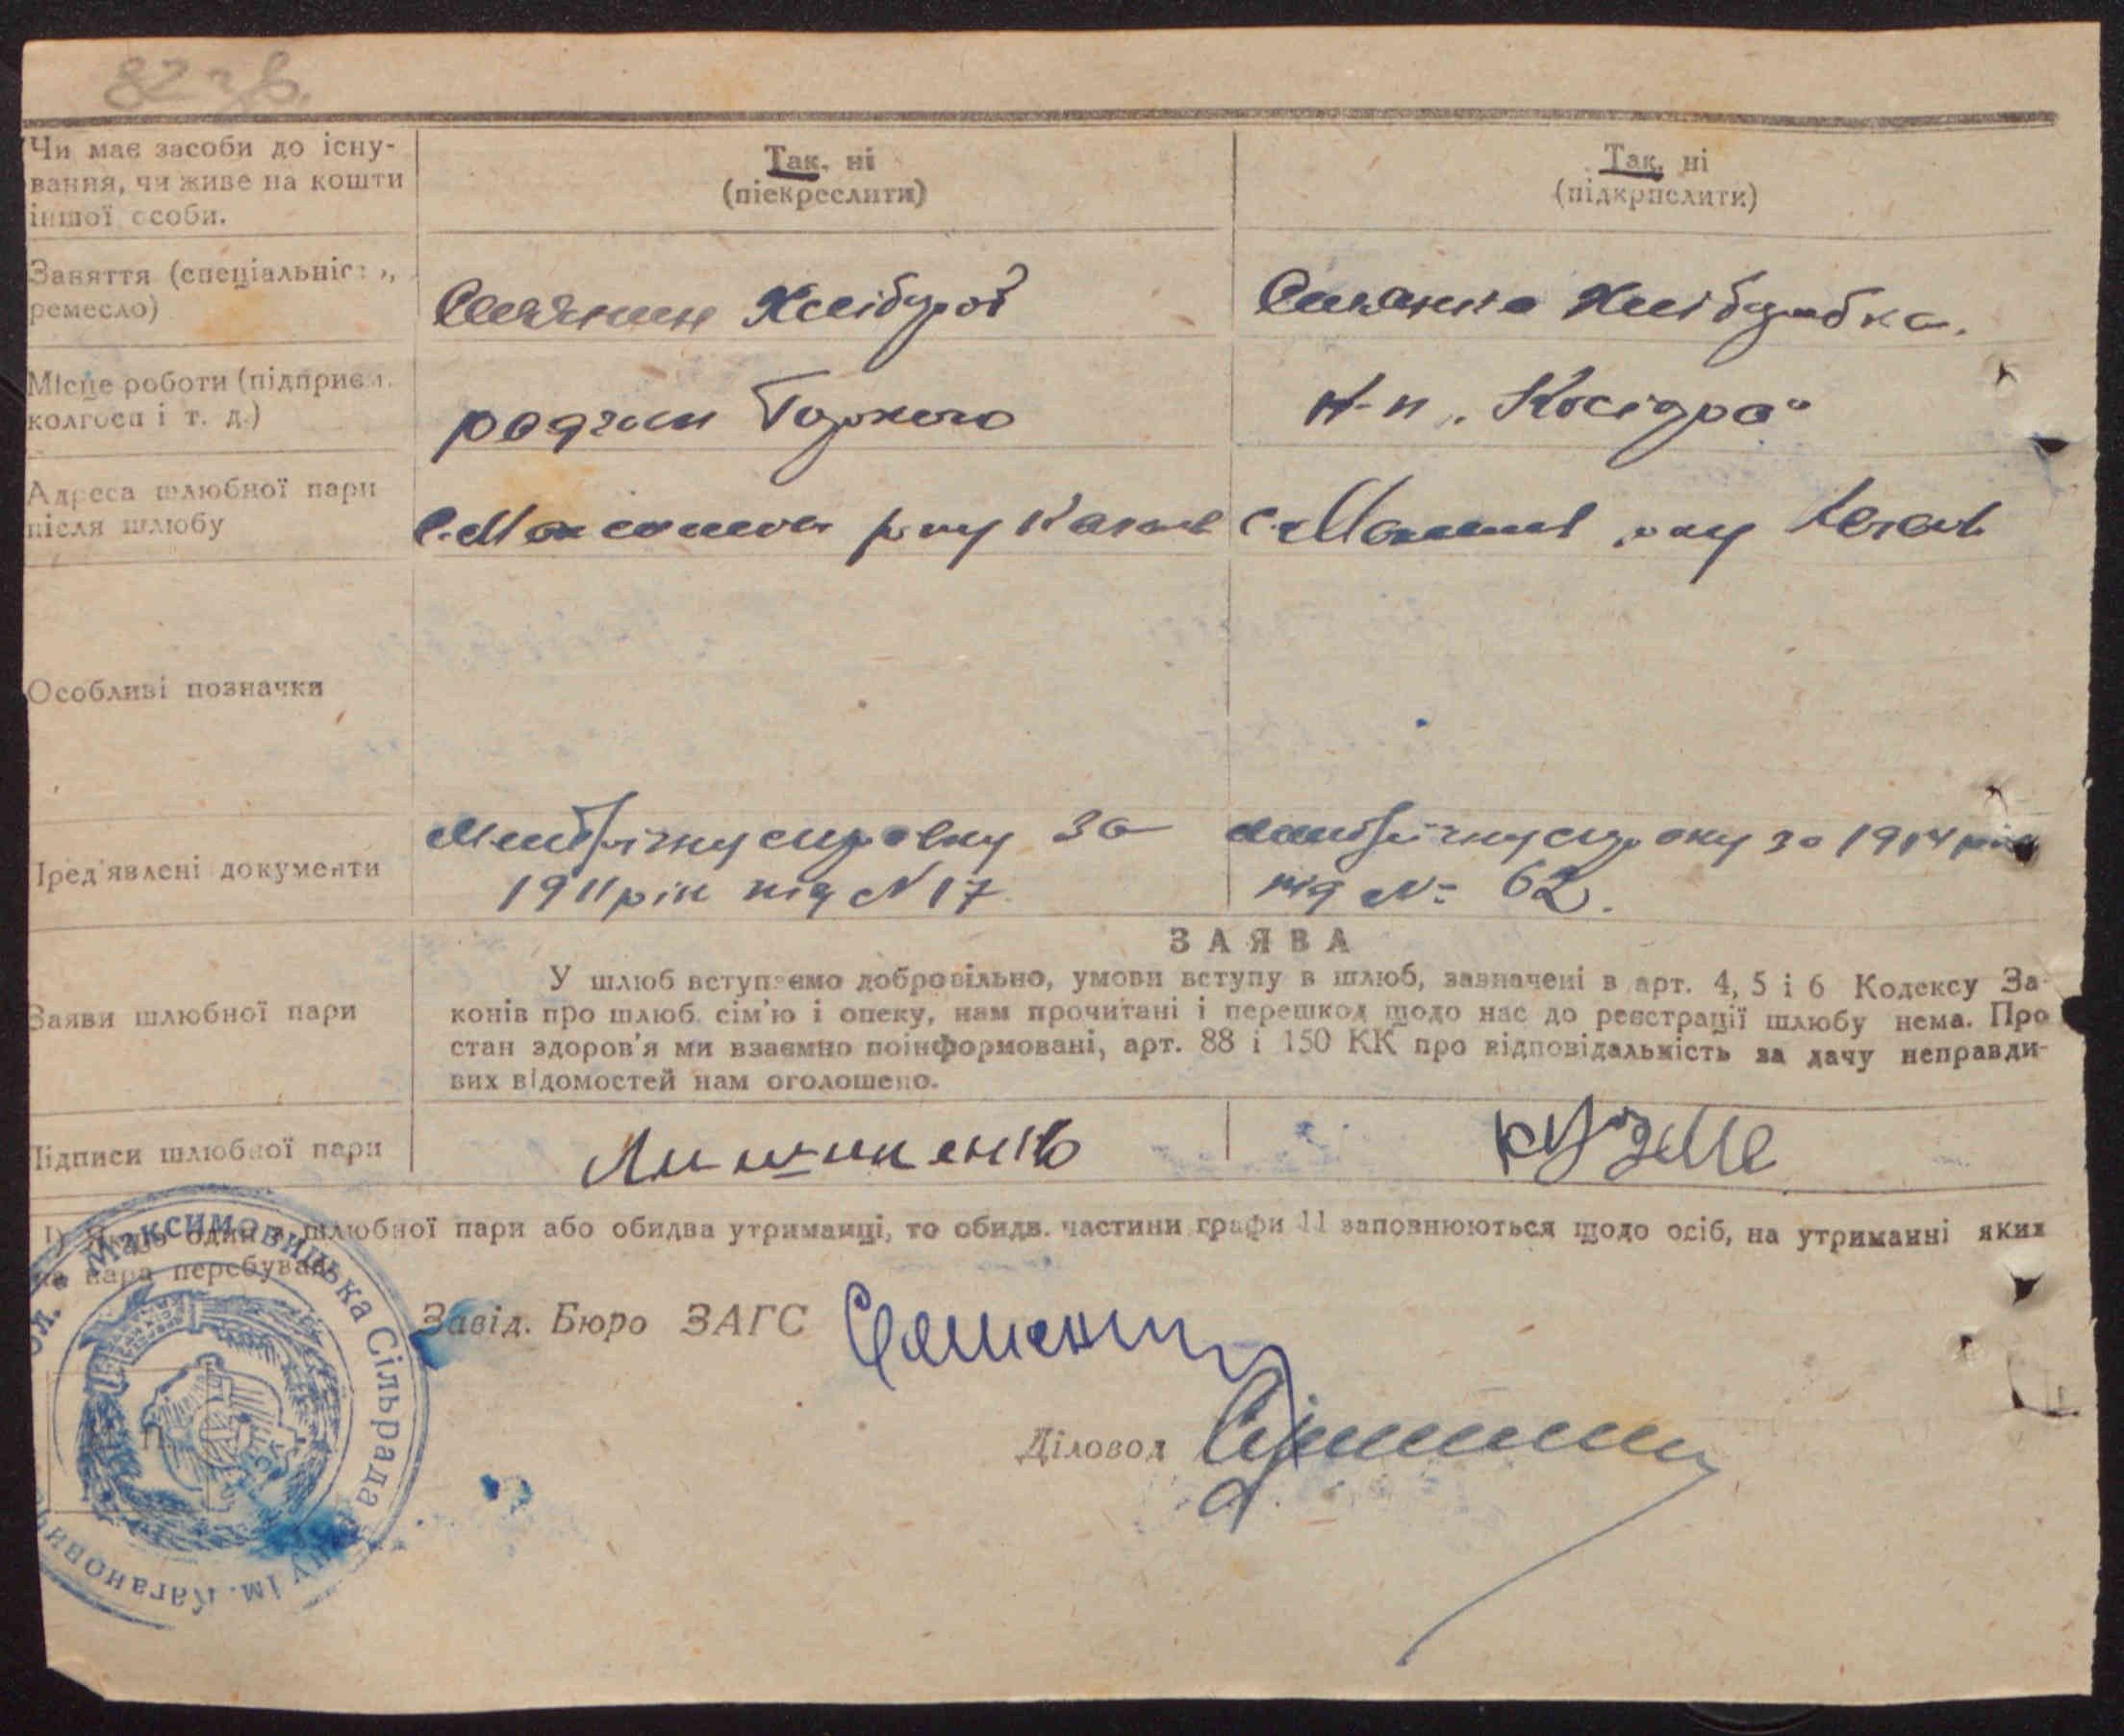 82 зв.
Чи має засоби до існу-
вання, чи живе на кошти
іншої особи.
Так, ні
(піекреслити)
Так, ні
(підкрислити)
Заняття (спеціальніс
ремесло)
Селянин Хлібороб
Селянка Хлі
Місце роботи (підприєм.
колгосп і т. д.)
радгосп Горького
к-п
Адреса шлюбної пари
після шлюбу
Особливі позначки
Пред'явлені документи
Метричну справку за
1911 рік під N 17
Метричну справку за 1914 рік
під № 62.
ЗАЯВА
Заяви шлюбної пари
У шлюб вступаємо добровільно, умови вступу в шлюб, зазначені в арт. 4, 5 і 6 Кодексу За-
конів про шлюб, сім'ю і опеку, нам прочитані і перешкод щодо нас до реєстрації шлюбу нема. Про
стан здоров'я ми взаємно поінформовані, арт. 88 і 150 КК про відповідальність за дачу неправди-
вих відомостей нам оголошено.
Підписи шлюбної пари
1) Якщо один з шлюбної пари або обидва утриманці, то обидв. частини графи 11 заповнюються щодо осіб, на утриманні яких
ця пара перебуває.
Максимовицька Сільрада
ну ім. Каганови
Завід. Бюро ЗАГС
Діловод